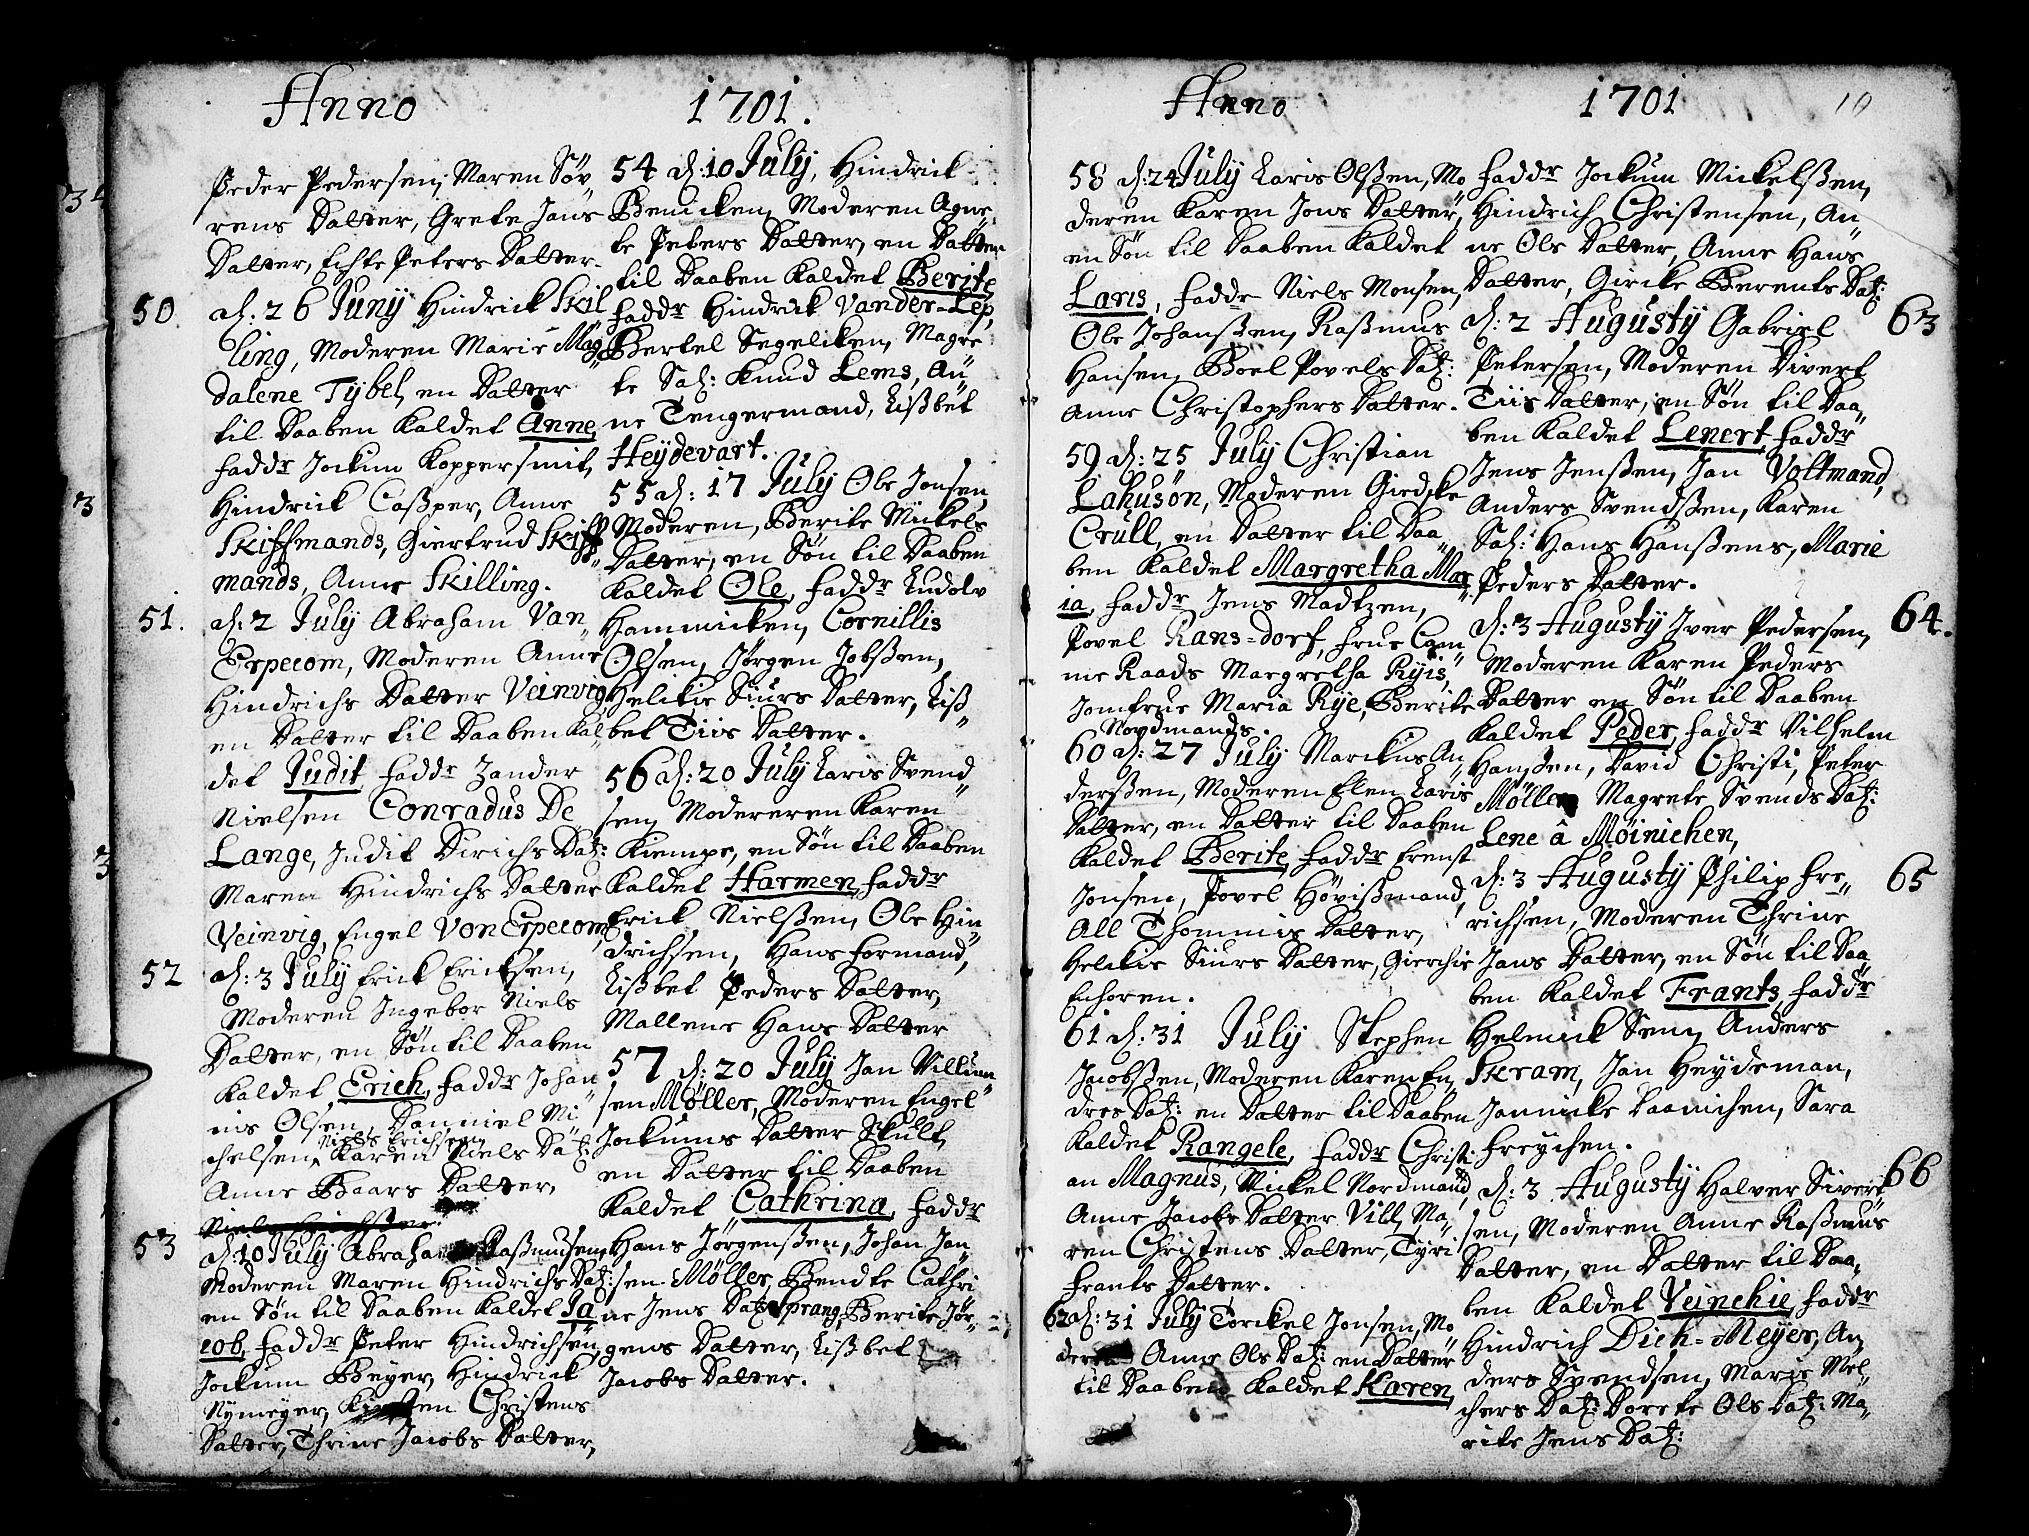 Anno 1701.
Peder Pedersen, Maren Söv„
rens Datter, Grete Jans
Datter, Echte Peters Datter.
50 d: 26 Juny Hindrick Skil
ling, Moderen Marie Mag„
dalene Tybel, en Datter
til Daaben kaldet Anne,
faddr Jockim Koppersmit,
Hindrick Casper, Anne
Skiffmands, Giertrud Skiff„
mands, Anne Skilling.
51. d: 2 July Abraham Van„
Erpecom, Moderen Anne
Hindrichs Datter Veinvig,
en Datter til Daaben kal„
det Judit, faddr Zander
Nielsen Conradus De
Lange, Judit Dirichs Datr:
Maren Hindrichs Datter
Veinvig, Engel Von Erpecom,
52 d: 3 July Erick Ericksen,
Moderen Ingebor Niels
Datter, en Sön til Daaben
kaldet Erich, faddr Johan„
nis Olsen, Danniel Mi„
Niels Erichsen,
chelsen, Karen Niels Datr:
Anne Baars Datter,
53 d: 10 July Abraham Rasmusen,
Moderen Maren Hindrichs Datr:
en Sön til Daaben kaldet Ja„
cob, faddr Peter Hindrichsen,
Jockum Beyer, Hindrick
Nymeyer, Kirsten Christens
Datter, Thrine Jacobs Datter,
54 d: 10 July, Hindrick
Benicken, Moderen Agne„
te Peters Datter, en Datter
til Daaben kaldet Berite,
faddr Hindrick Vander-Lep,
Bertel Segeliken, Magre
te Sal: Knud Lems, An„
ne Tengermand, Lisbet
Heydevart.
55 d: 17 July Ole Jonsen,
Moderen, Berite Mickels
Datter, en Sön til Daaben
kaldet Ole, faddr Ludolv
Hammicken, Cornillis
Olsen, Jörgen Jobsen,
Helikie Siurs Datter, Lis„
bet Tiis Datter.
56 d: 20 July Laris Svend„
sen, Modereren Karen
Kiempe, en Sön til Daaben
kaldet Harmen, faddr
Erick Nielsen, Ole Hin„
drichsen, Hans Formand,
Lisbet Peders Datter,
Mallene Hans Datter
57 d: 20 July Jan Villum„
sen Möller, Moderen Engel
Jockums Datter Skult,
en Datter til Daaben
kaldet Cathrina, faddr
Hans Jörgensen, Johan Jan„
sen Möller, Bendte Cathri
ne Jens Datr: Sprang, Berite Jör„
gens Datter, Lisbet
Jacobs Datter.
Anno 1701 10
58 d: 24 July Laris Olsen, Mo
deren Karen Jons Datter,
en Sön til Daaben kaldet
Laris, faddr Niels Monsen,
Ole Johansen, Rasmus
Hansen, Boel Povels Datr:
Anne Christophers Datter.
59 d: 25 July Christian
Lahusön, Moderen Giedske
Crull, en Datter til Daa„
ben kaldet Margretha Mar„
ia, faddr Jens Madtzen,
Povel Rans=dorf, frue Cam„
me Raads Margretha Ryis,
Jomfrue Maria Rye, Berite
Nordmands.
60 d: 27 July Marckus An„
dersen, Moderen Elen Laris
Datter, en Datter til Daaben
kaldet Berite, faddr Ernst
Jonsen, Povel Hövismand,
All Thommis Datter,
Helckie Siurs Datter, Gierchie
Enhoren.
61 d: 31 July Stephen
Jacobsen, Moderen Karen En„
dres Datr: en Datter til Daaben
kaldet Rangele, faddr Christi„
an Magnus, Mickel Nordmand,
Anne Jacobs Datter Vill, Ma„
ren Christens Datter, Tyri
Frants Datter.
62 d: 31 July Torckel Jonsen, Mo„
deren Anne Ols Datr: en Datter
til Daaben kaldet Karen,
faddr Jockum Mickelsen,
Hindrich Christensen, An„
ne Ols Datter, Anne Hans
Datter, Gircke Berents Datr:
d: 2 Augusty Gabriel 63
Petersen, Moderen Divert
Tiis Datter, en Sön til Daa„
ben kaldet Lenert, faddr
Jens Jensen, Jan Voltmand,
Anders Svendsen, Karen
Sal: Hans Hansens, Marie
Peders Datter.
d: 3 Augusty Iver Pedersen, 64.
Moderen Karen Peders
Datter en Sön til Daaben
kaldet Peder, faddr Vilhelm
Hansen, David Christi, Peter
Möller Magrete Svends Datr:
Lene â Möinichen,
d: 3 Augusty Philip Fre„ 65
richsen, Moderen Thrine
Jans Datter, en Sön til Daa„
ben kaldet Frants, faddr
Helmick Sem, Anders
Skram, Jan Heydeman,
Jannicke Daanichen, Sara
Freychen.
d: 3 Augusty Halver Sivert„ 66
sen, Moderen Anne Rasmus
Datter, en Datter til Daa„
ben kaldet Veinchie, faddr
Hindrich Dich=Meyer, An„
ders Svendsen, Marie Mel„
chers Datr: Dorete Ols Datr: Ma„
rite Jens Datr: